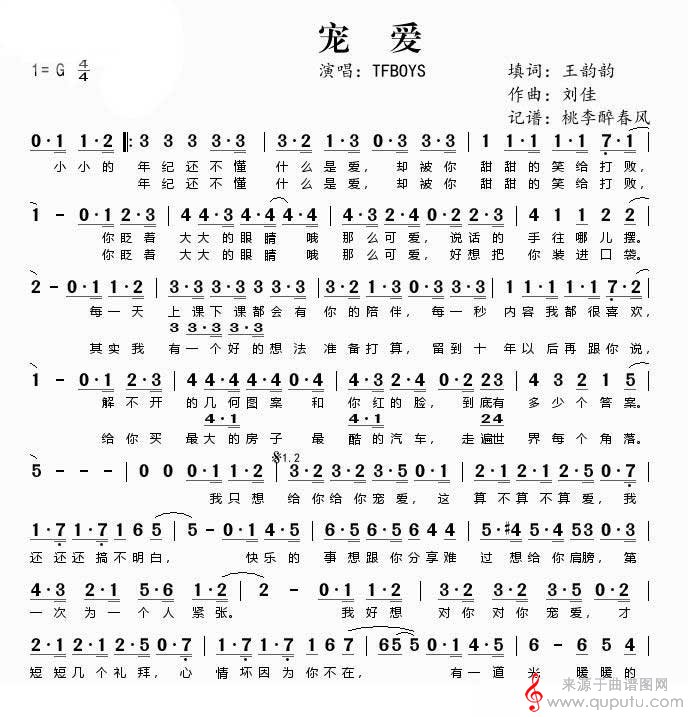 宠 爱
1= G 4/4 演唱：TFBOYS 填词：王韵韵
作曲：刘佳
记谱：桃李醉春风
0·1 1·2 |: 3 3 3 3·3 | 3·2 1·3 0·3 2·3 | 1 1 1·1 7·1 |
小小的 年纪还不懂 什么是爱，却被你 甜甜的笑给打败，
年纪还不懂 什么是爱，却被你 甜甜的笑给打败，
1 - 0·1 2·3 | 4·4 3·4 3·4 | 4·3 2·4 0·2 2·3 | 4 1 2 2 |
你眨着 大大的眼睛 哦 那么可爱，说话的 手往哪儿摆。
你眨着 大大的眼睛 哦 那么可爱，好想把 你装进口袋。
2 - 0·1 1·2 | 3·3 3·3 3·3 3·3 | 3·2 1·3 0·3 2·3 | 1·1 1·1 1·1 7·2 |
每一天 上课下课都会有你的陪伴，每一秒 内容我都很喜欢，
3 3·3 3·3
其实我 有一个好的想法 准备打算，留到十年以后再跟你说，
1 - 0·1 2·3 | 4·4 4·4 4·4 | 4·3 2·4 0·2 23 | 4 3 2 1 5 |
解不开 的几何图案 和你红的脸，到底有 多少个答案。
4·1 4·1 24
给你买 最大的房子 最酷的汽车，走遍世 界每个角落。
𝄋1.2
5 - - - | 0 0 0·1 1·2 | 3·2 3·2 3·2 0·3 | 2·1 2·1 2·5 0·7 |
我只想 给你给你宠爱，这 算不算不算爱，我
1·7 1·7 1 6 5 | 5 - 0·1 4·5 | 3·5 6·5 3·5 1·4 | 5·#4 5·4 53 0·5 |
还还还搞不明白， 快乐的 事想跟你分享难 过想给你肩膀，第
4·3 2·1 5·6 1·2 | 2 - 0·1 1·2 | 3·2 3·2 3·2 0·3 |
一次为一个人紧张。 我好想 对你对你宠爱，才
2·1 2·1 2·5 0·7 | 1·7 1·7 1 67 6·5 | 5 - 0·1 4·5 | 5 - 0·5 5·5 |
短短几个礼拜，心 情坏因为你不在， 有一道 光 暖暖的
来源于曲谱图网
www.quputu.com